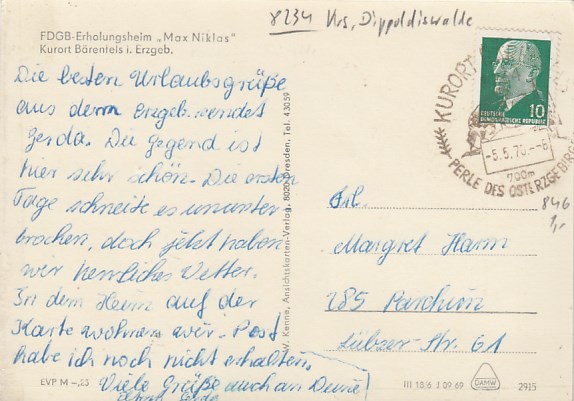 8234 Krs. Dippoldiswalde
FDGB-Erholungsheim „Max Niklas"
Kurort Bärenfels i. Erzgeb.
Die besten Urlaubsgrüße
aus dem Erzgeb. sendet
Gerda. Die Gegend ist
hier sehr schön. Die ersten
Tage schneite es ununter
brochen, doch jetzt haben
wir herrliches Wetter.
In dem Heim auf der
Karte wohnen wir. Post
habe ich noch nicht erhalten.
Viele Grüße auch an Deine
EVP M –,25
W. Kenne, Ansichtskarten-Verlag, 8020 Dresden, Tel. 43059
10
DEUTSCHE
DEMOKRATISCHE REPUBLIK
KURORT
-5.5.70.-8
700m
PERLE DES OSTERZGEBIRGE
846
1,-
Frl.
Margret Harm
285 Parchim
Lübzer-Str. 61
III 18/6 J 09 69
DAMW
2915